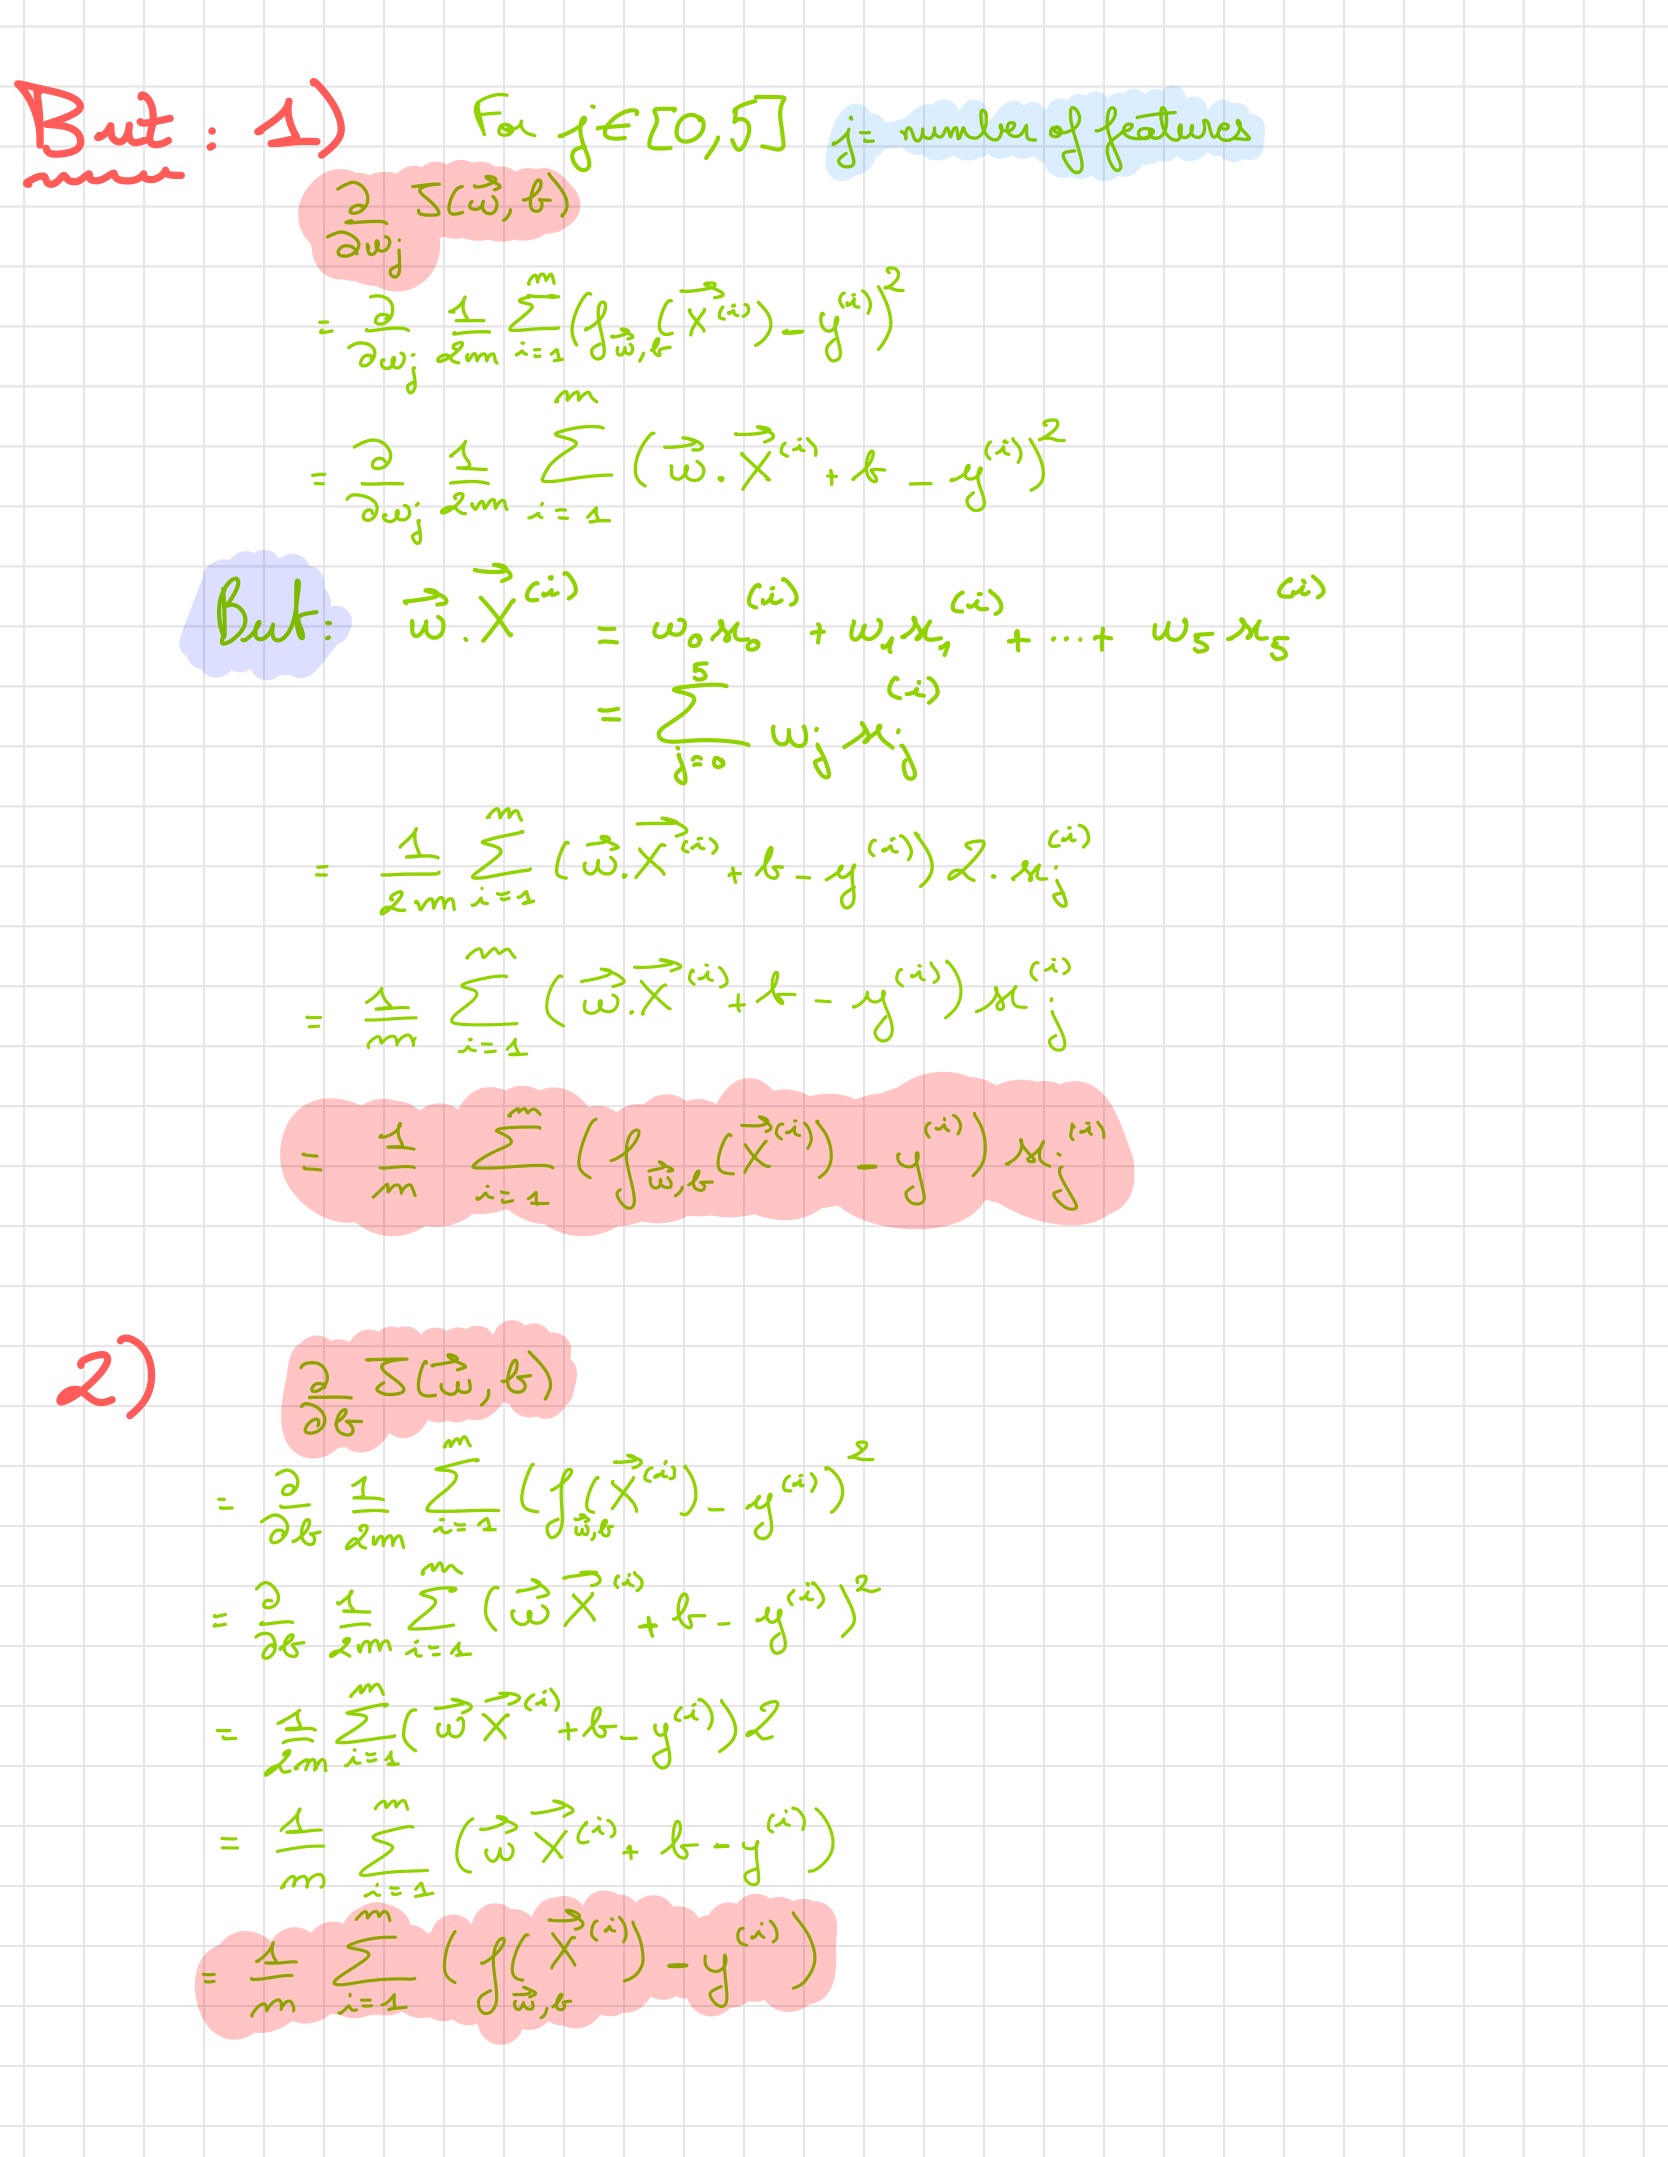 But : 1) For j ∈ [0,5] j = number of features
∂/∂w_j J(w⃗, b)
= ∂/∂w_j 1/2m Σ_{i=1}^{m} (f_{w⃗,b}(X⃗^{(i)}) - y^{(i)})^2
= ∂/∂w_j 1/2m Σ_{i=1}^{m} (w⃗ . X⃗^{(i)} + b - y^{(i)})^2
But: w⃗ . X⃗^{(i)} = w_0 x_0^{(i)} + w_1 x_1^{(i)} + ... + w_5 x_5^{(i)}
= Σ_{j=0}^{5} w_j x_j^{(i)}
= 1/2m Σ_{i=1}^{m} (w⃗ . X⃗^{(i)} + b - y^{(i)}) 2 . x_j^{(i)}
= 1/m Σ_{i=1}^{m} (w⃗ . X⃗^{(i)} + b - y^{(i)}) x_j^{(i)}
= 1/m Σ_{i=1}^{m} (f_{w⃗,b}(X⃗^{(i)}) - y^{(i)}) x_j^{(i)}
2) ∂/∂b J(w⃗, b)
= ∂/∂b 1/2m Σ_{i=1}^{m} (f_{w⃗,b}(X⃗^{(i)}) - y^{(i)})^2
= ∂/∂b 1/2m Σ_{i=1}^{m} (w⃗ X⃗^{(i)} + b - y^{(i)})^2
= 1/2m Σ_{i=1}^{m} (w⃗ X⃗^{(i)} + b - y^{(i)}) 2
= 1/m Σ_{i=1}^{m} (w⃗ X⃗^{(i)} + b - y^{(i)})
= 1/m Σ_{i=1}^{m} (f_{w⃗,b}(X⃗^{(i)}) - y^{(i)})